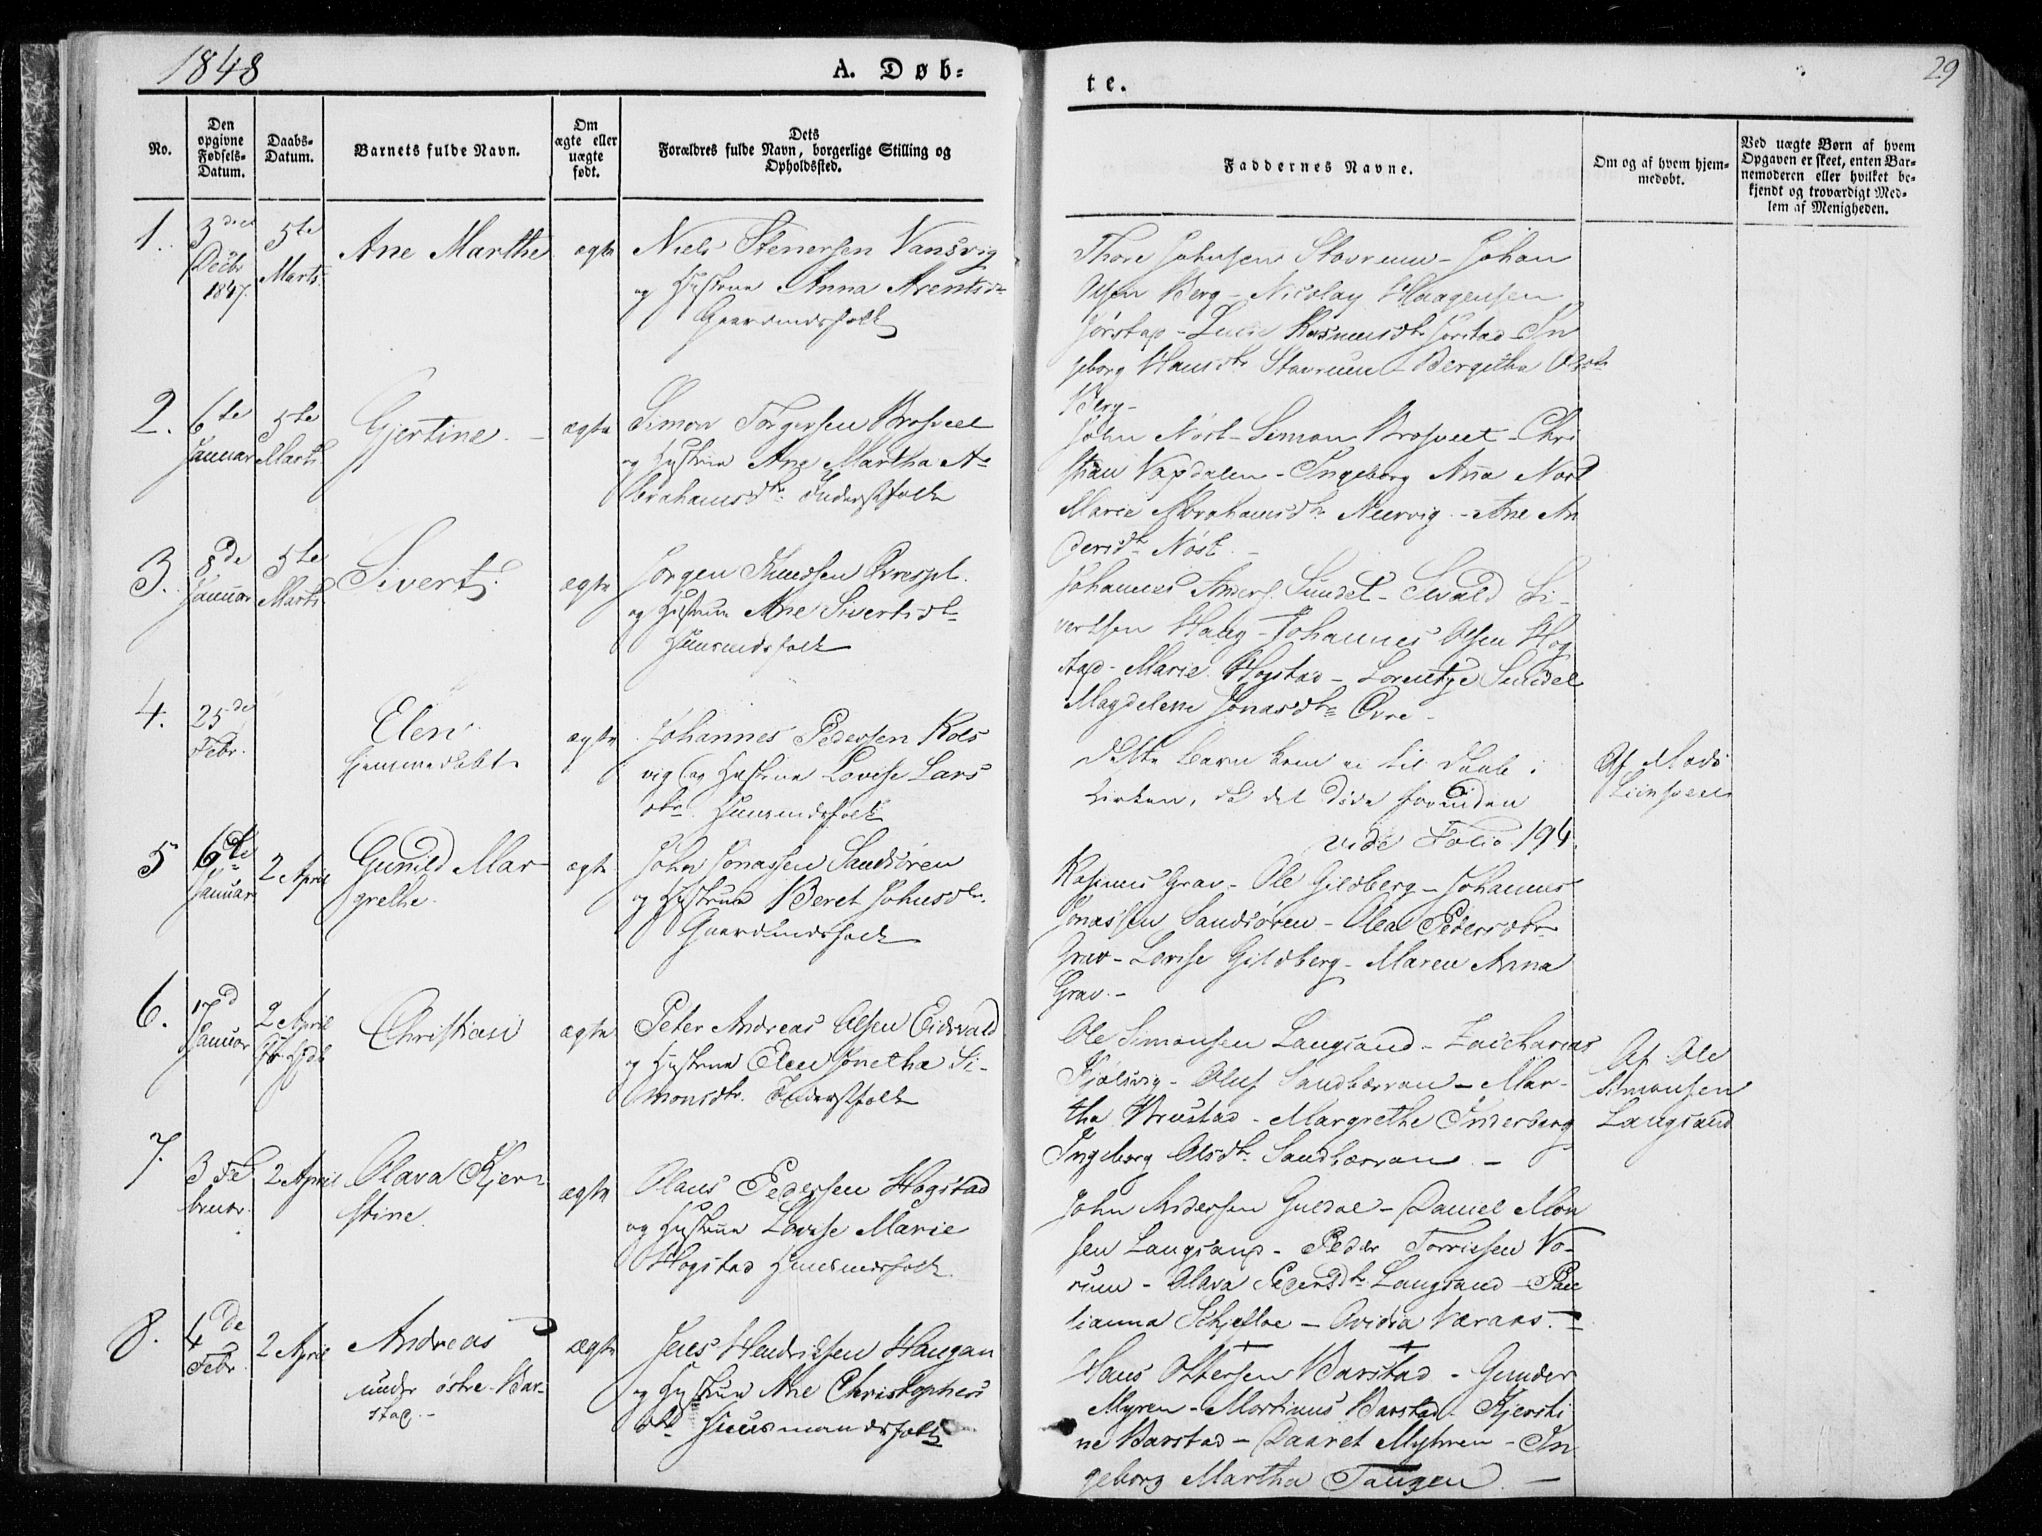 1848
A. Døb=
te.
29
No.
Den opgivne Fødsels-Datum.
Daabs-Datum.
Barnets fulde Navn.
Om ægte eller uægte født.
Dets Forældres fulde Navn, borgerlige Stilling og Opholdssted.
Faddernes Navne.
Om og af hvem hjemmedøbt.
Ved uægte Børn af hvem
Opgaven er skeet, enten Bar-
nemoderen eller hvilket be-
kjendt og troværdigt Med-
lem af Menigheden.
1.
3die
Decbr
1847.
5te
Marts
Ane Marthe
ægte
Niels Stenersen Vansvig
og Hustrue Anna Arentsdr
Gaardmdsfolk
Thore Johnsen Stavrum - Johan
Olsen Berg - Nicolay Haagensen
Jørstad - Rasmusdtr Jørstad - In
geborg Hansdtr Stavrum - Bergitha Olsdtr
Berg -
2.
6te
Januar
5te
Marts
Gjertine. -
ægte
Simon Torgersen
og Hustrue Ane Martha A-
brahamsdtr Inderstfolk
John Nöst - Simon - Chri
stian - Ingeborg Aña Nöst
Marie Abrahamsdtr - Ane An
dersdtr Nöst. -
3.
8de
Januar
5te
Marts
Sivert.
ægte
Jørgen Knudsen
og Hustrue Ane Sivertsdtr
Huusmdsfolk
Johannes Anders. Sundet - Sivald Si-
vertsen Haug - Johannes Olsen Hog
stad - Marie Hogstad - Lorentze Sundet
Magdelene Jonasdtr Øvre -
4.
25de
Febr.
Elen
hjemmedöbt
ægte
Johannes Pedersen Kols
vig og Hustrue Lovise Lars
dtr. Huusmdsfolk
dette Barn kom ei til Daab i
Kirken, da det døde forinden
vide Folio 194.
Af Mads
5
6te
Januar
2 April
Gunild Mar-
grethe.
ægte
John Jonassen Sandsören
og Hustrue Beret Johnsdtr.
Gaardmdsfolk
Rasmus Grav - Ole Gildberg - Johannes
Jonassen Sandsören - Olea Pedersdtr
Grav - Lovise Gildberg - Maren Anna
Grav. -
6.
17d
Januar
2 April
Christian
ægte
Peter Andreas Olsen Eidsvald
og Hustrue Elen Jonetha Si-
monsdtr. Inderstfolk
Ole Simonsen Langsand - Zacharias
Kjølsvig - Oluf Sandbærvan - Mar-
tha Brustad - Margrethe Inderberg
Ingeborg Olsdtr Sandbærvan. -
Af Ole
Simonsen
Langsand
7.
3 Fe
bruar.
2 April
Olava Kjer-
stine.
ægte
Olaus Pedersen Hogstad
og Hustrue Lovise Marie
Hogstad Huusmdsfolk
John Andersen Guldal - Daniel Mon
sen Langsand - Peder Torrissen No-
rum - Olava Pedersdtr Langsand - Pau
lianna Schjefloe - Ovidia Væraas. -
8.
4de
Febr
2 April
Andreas
under östre Bar-
stad. -
ægte
Jens Hendriksen Haugan
og Hustrue Ane Christophers
dtr Huusmandsfolk
Hans Ottersen Barstad - Gunder
Myren - Martinus Barstad - Kjersti
ne Barstad - Daaret Myhren - In
geborg Martha Tangen. -